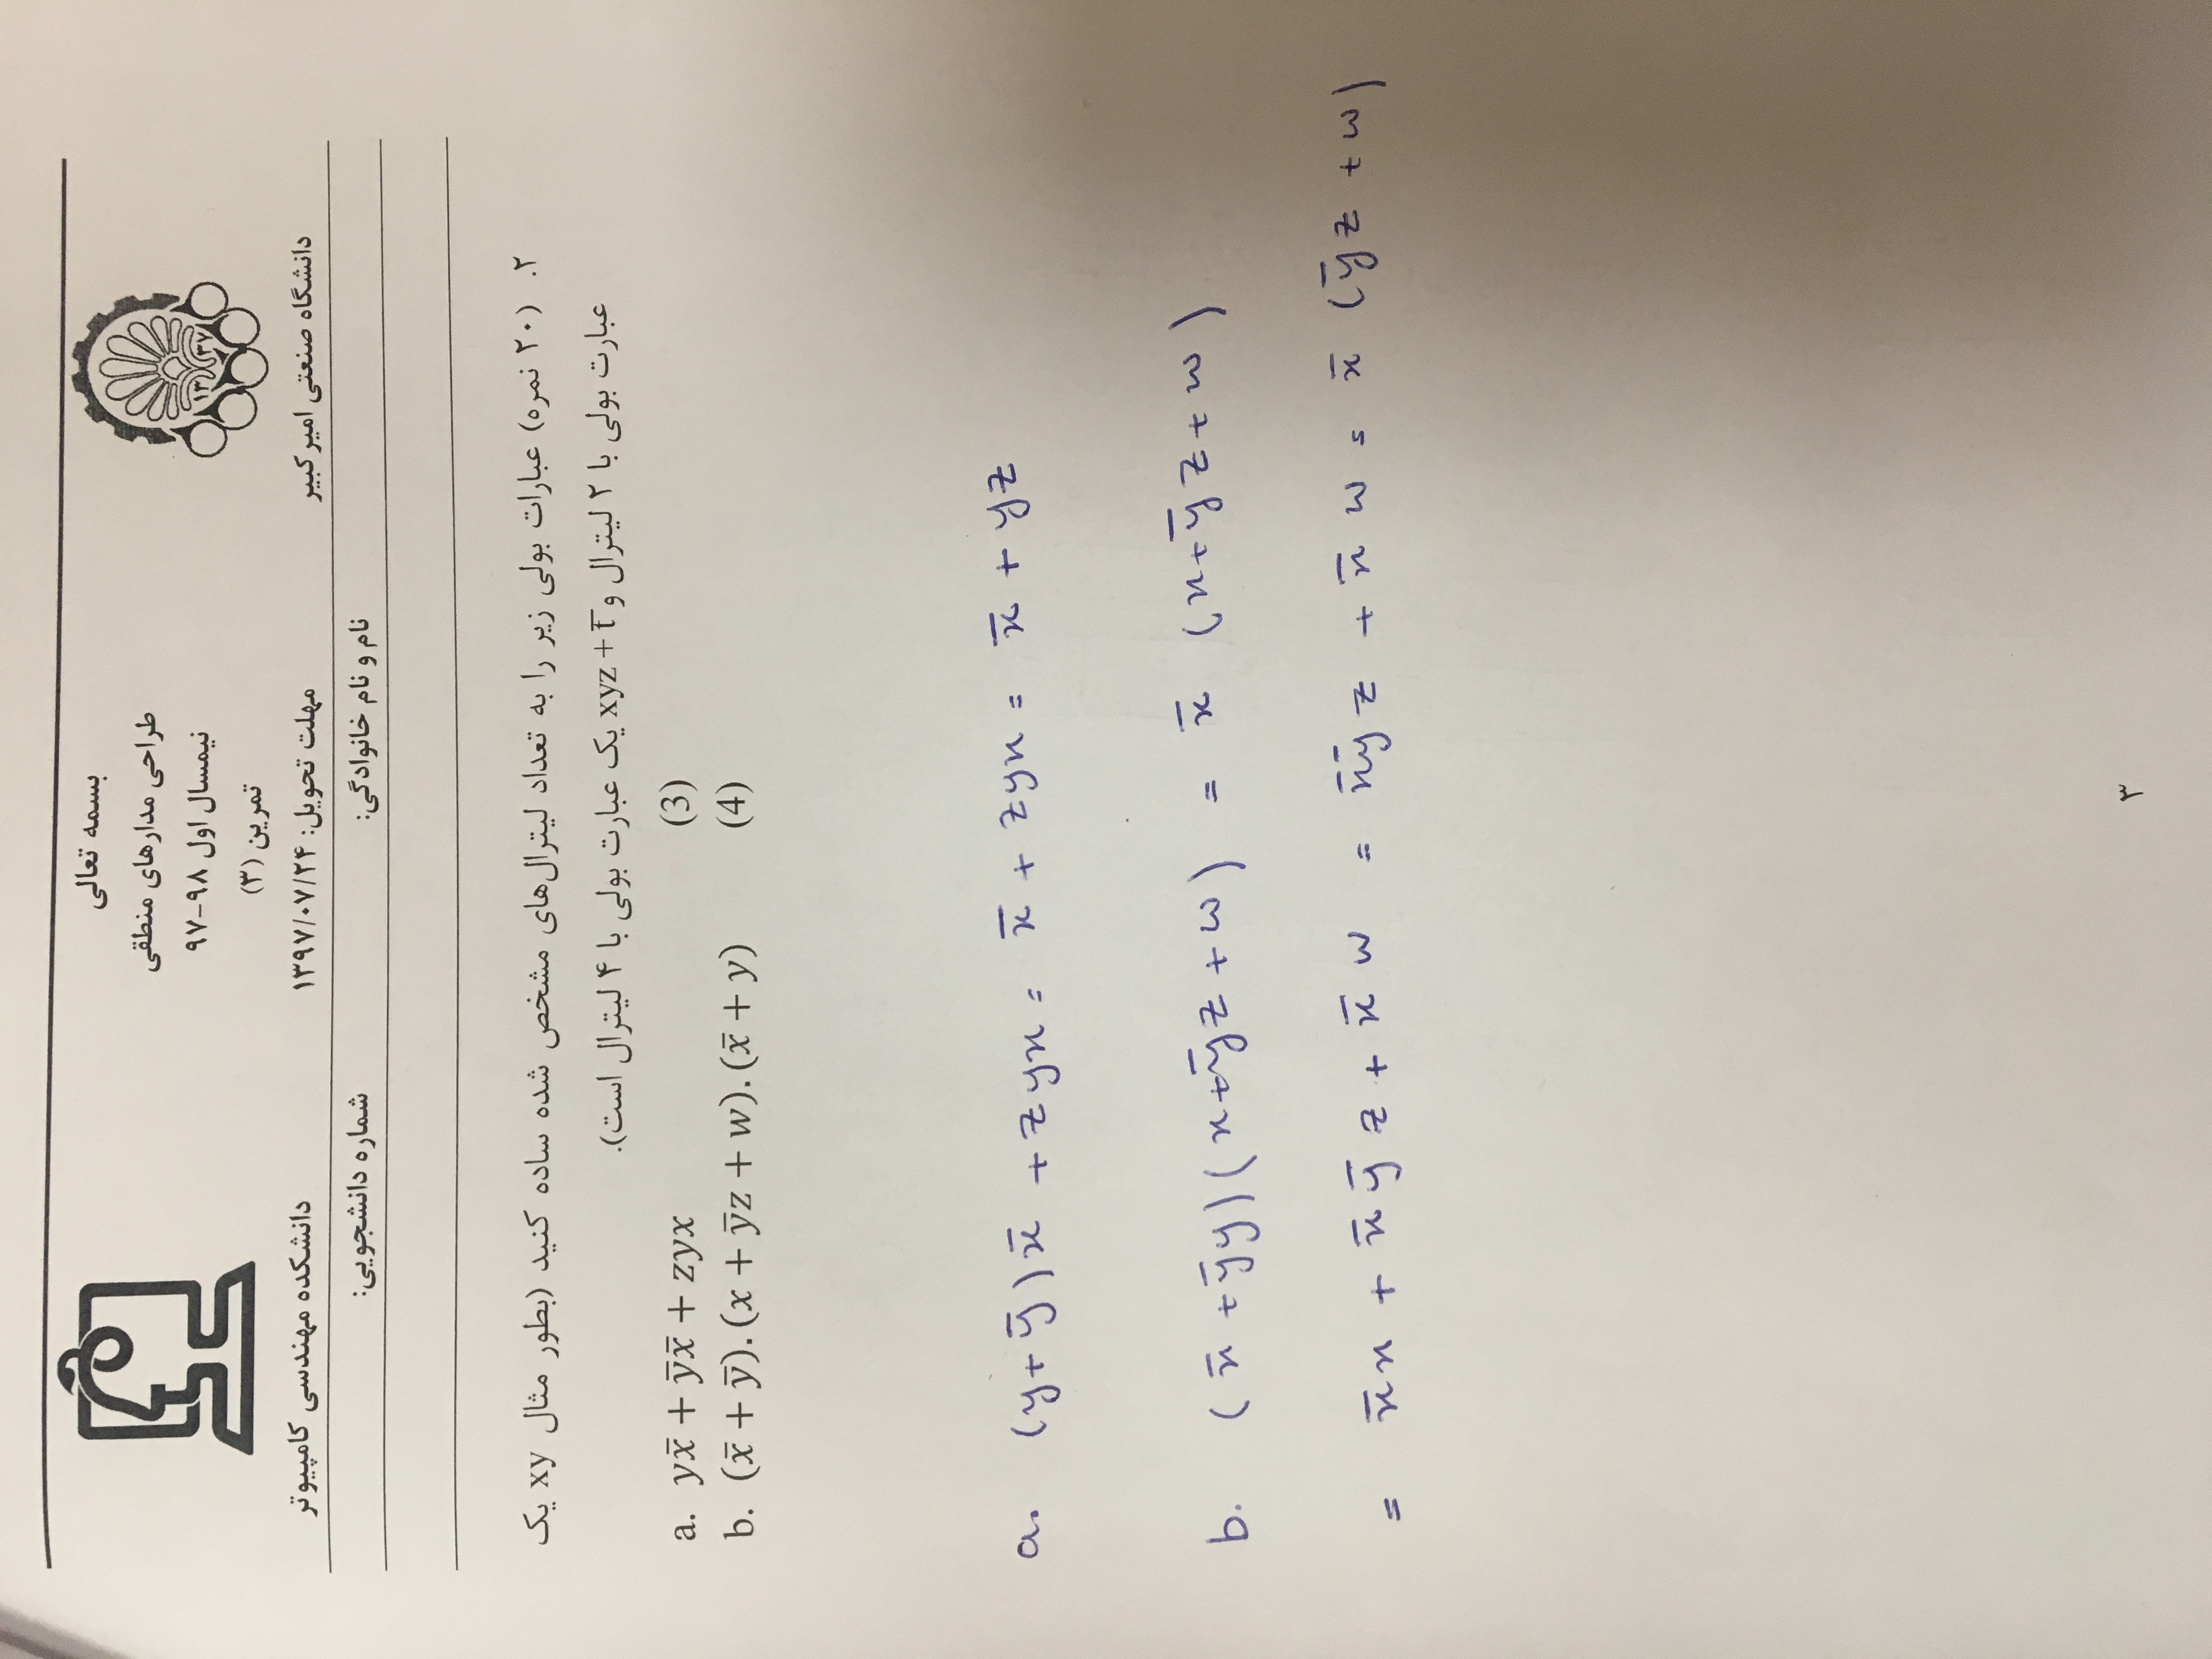 بسمه تعالی
طراحی مدارهای منطقی
نیمسال اول ۹۸-۹۷
تمرین (۳)
مهلت تحویل: ۱۳۹۷/۰۷/۲۴
۱۳ ۳۷
دانشگاه صنعتی امیرکبیر
دانشکده مهندسی کامپیوتر
نام و نام خانوادگی: شماره دانشجویی:
۲. (۲۰ نمره) عبارات بولی زیر را به تعداد لیترال‌های مشخص شده ساده کنید (بطور مثال xy یک
عبارت بولی با ۲ لیترال و xyz + t̅ یک عبارت بولی با ۴ لیترال است).
a. yx̅ + y̅x̅ + zyx (3)
b. (x̅ + y̅).(x + y̅z + w).(x̅ + y) (4)
a. (y+y̅)x̅ + zyx = x̅ + zyx = x̅ + yz
b. (x̅ + y̅y)(x+y̅z + w) = x̅ (x+y̅z + w)
= x̅x + x̅y̅z + x̅w = x̅y̅z + x̅w = x̅ (y̅z + w)
۳